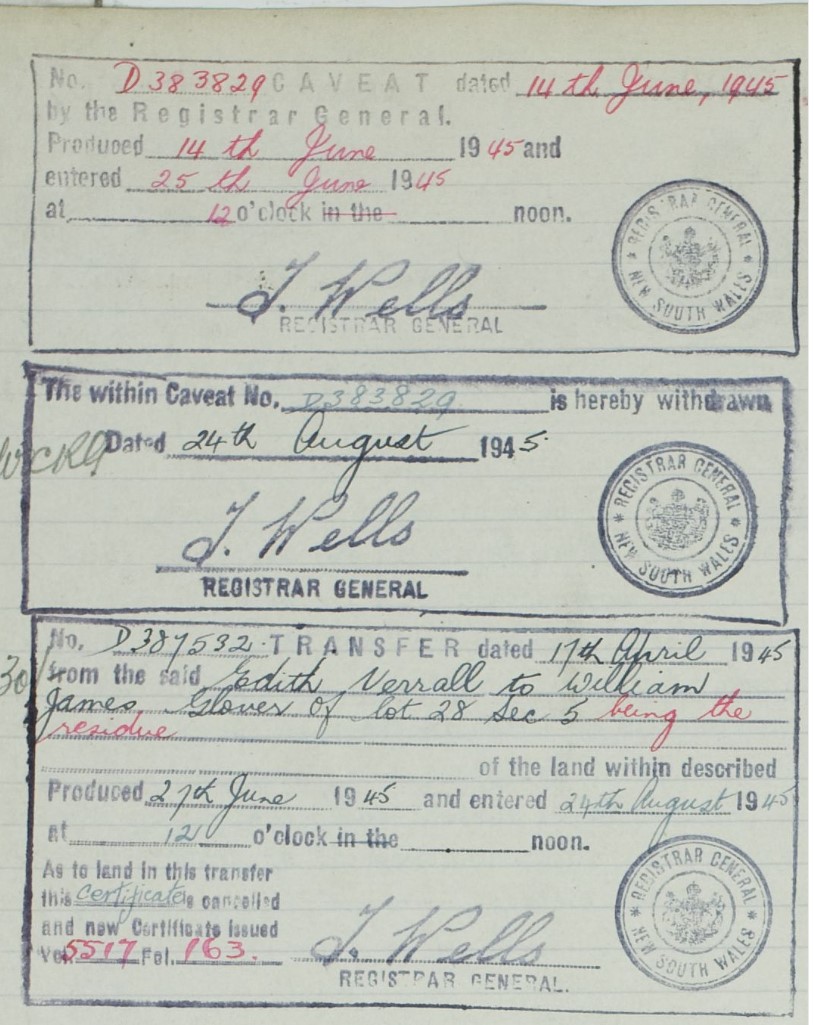 No. D383829 CAVEAT dated 14th June, 1945
by the Registrar General.
Produced 14th June 1945 and
entered 25th June 1945
at 12 o'clock in the noon.
REGISTRAR GENERAL
NEW SOUTH WALES
J. Wells
REGISTRAR GENERAL
The within Caveat No. D383829 is hereby withdrawn
Dated 24th August 1945.
REGISTRAR GENERAL
NEW SOUTH WALES
J. Wells
REGISTRAR GENERAL
No. D387532 TRANSFER dated 17th April 1945
from the said Edith Verrall to William
James Glover of lot 28 Sec 5 being the
residue
of the land within described
Produced 27th June 1945 and entered 24th August 1945
at 12 o'clock in the noon.
As to land in this transfer
this Certificate is cancelled
and new Certificate Issued
Vol. 5517 Fol. 163.
J. Wells
REGISTRAR GENERAL.
REGISTRAR GENERAL
NEW SOUTH WALES